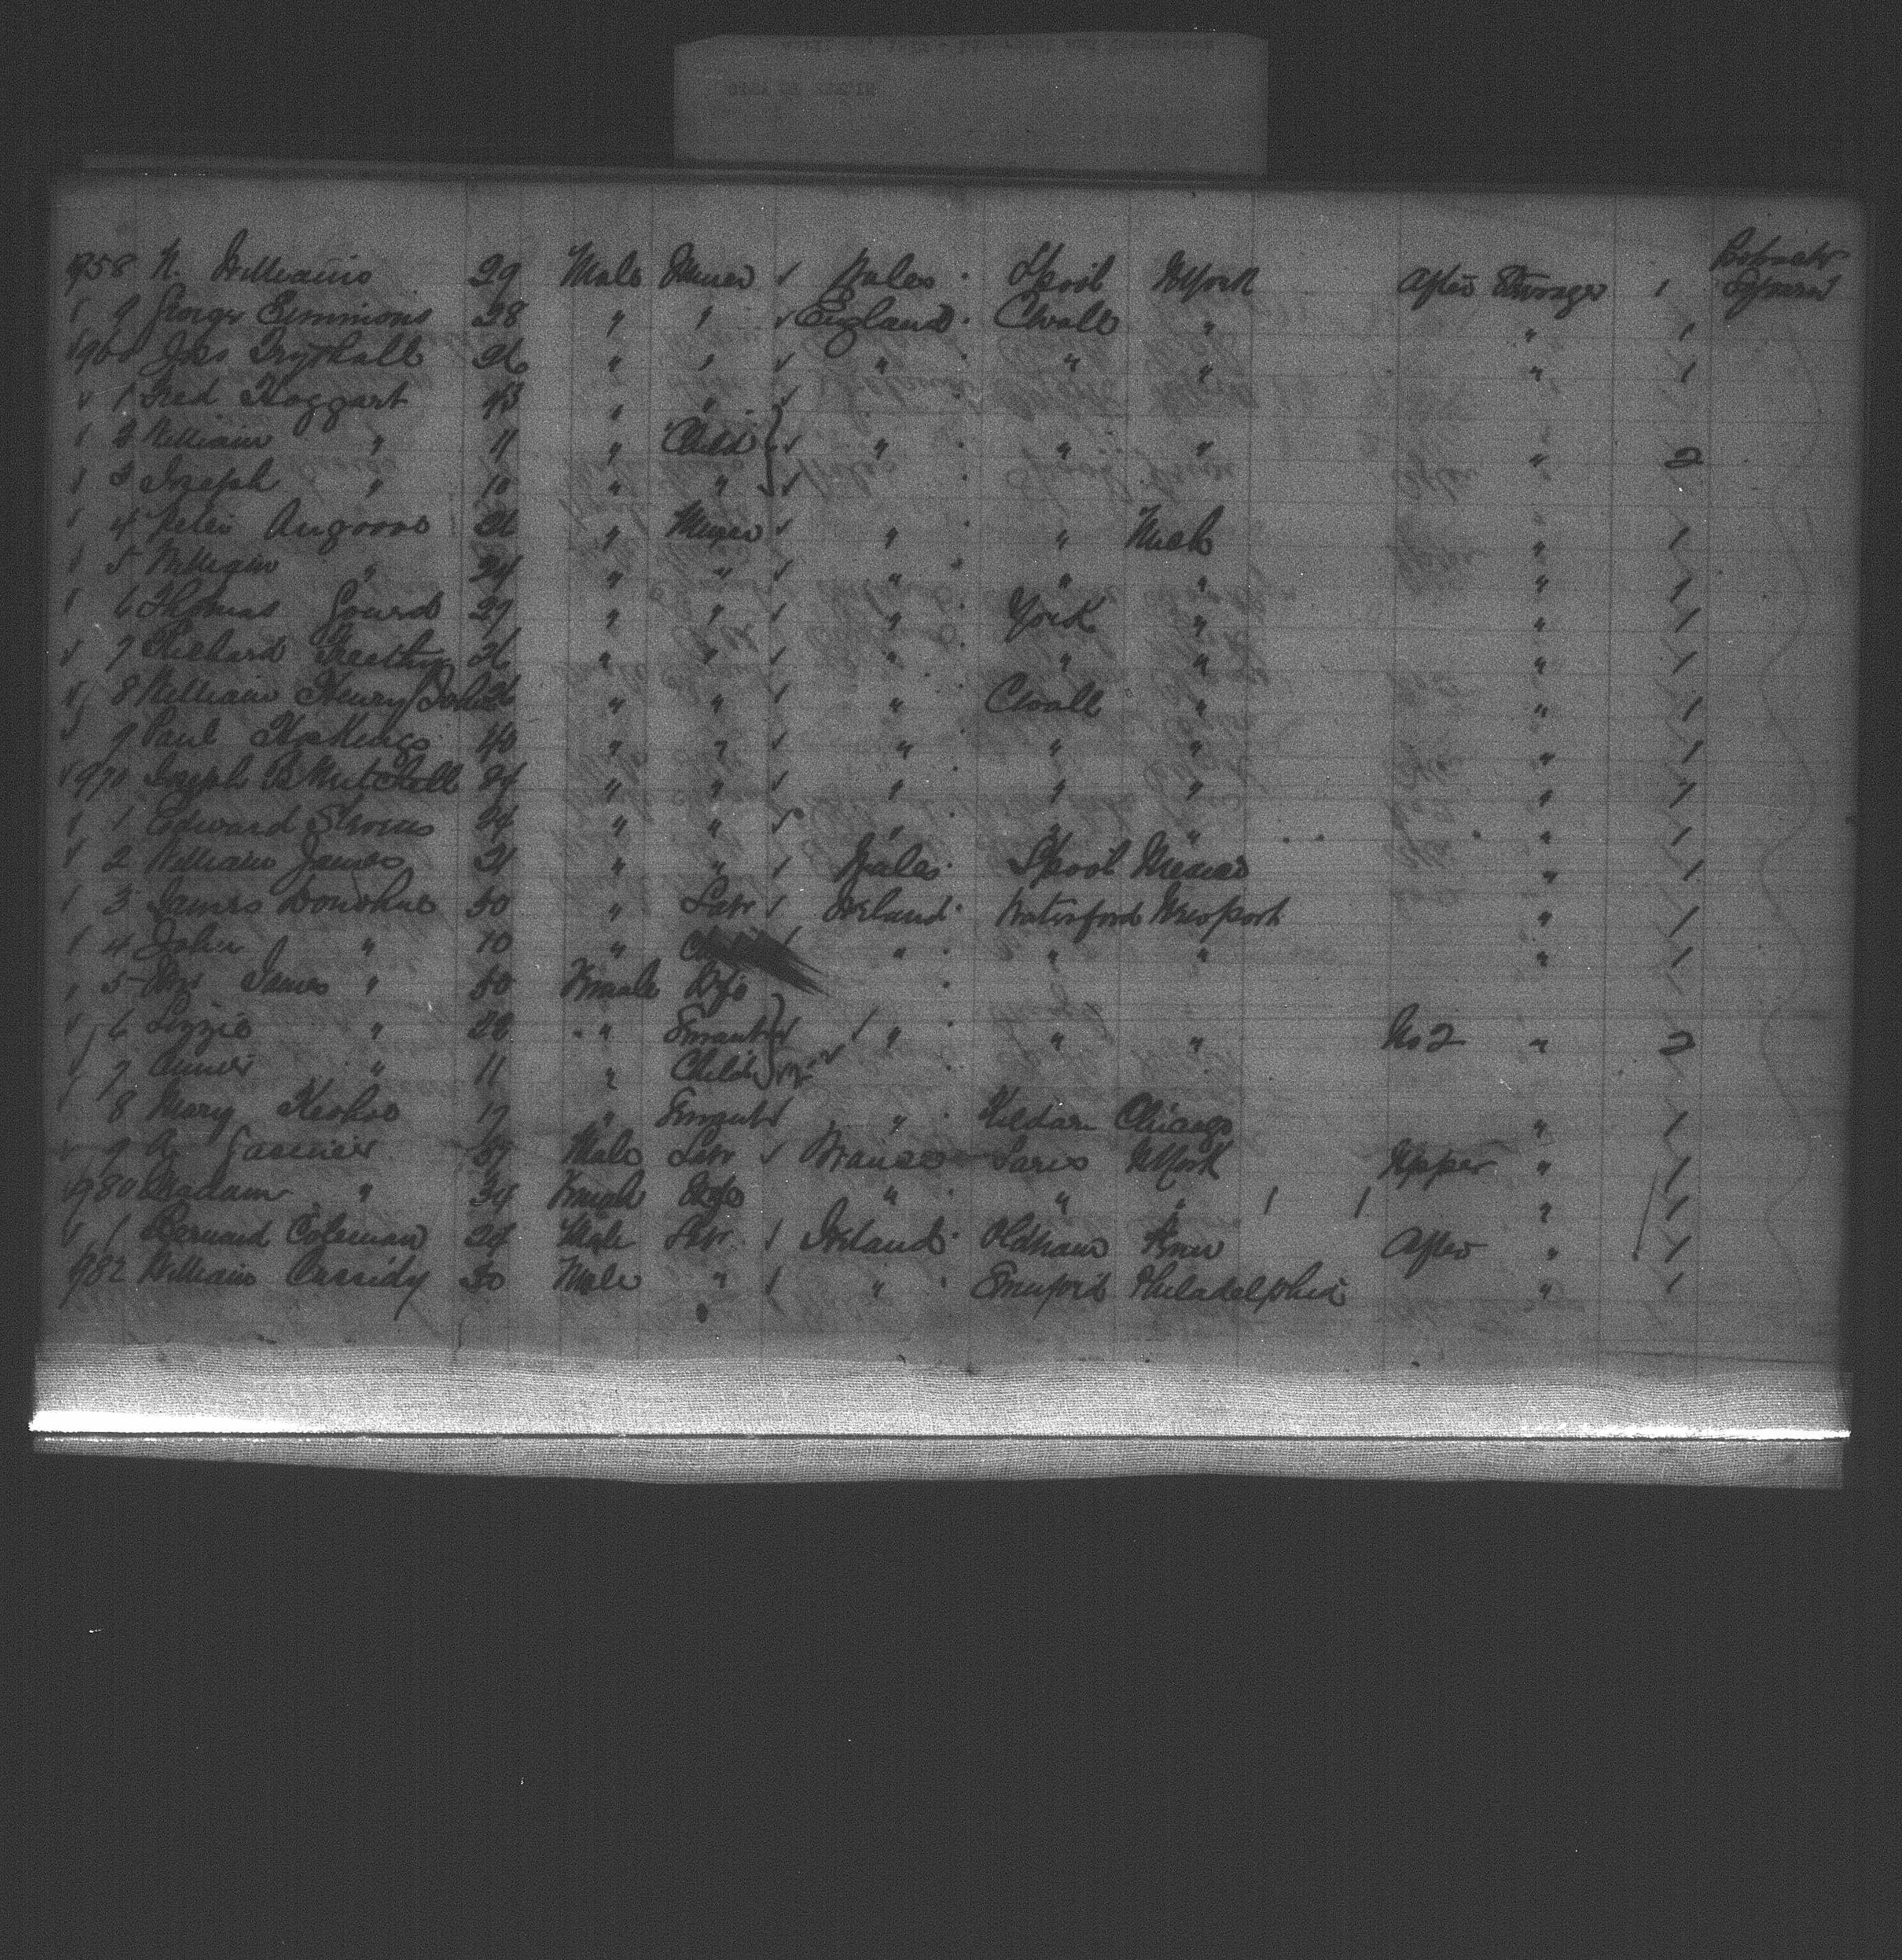 958 N. Williams 29 Male Miner Wales L'pool N York After Steerage 1
9 George Simmions 28 " " England C'wall " " 1
960 Jas Trythall 26 " " " " " " 1
1 Fred Hoggart 43 " "
2 William " 11 " Child " " " " 2
3 Joseph " 10 " "
4 Peter Angoove 26 " Miner " " Mich " 1
5 William " 24 " " " " " " 1
6 Thomas Gourd 27 " " " York " " 1
7 Richard 26 " " " " " " 1
8 William Henry John 26 " " " C'wall " " 1
9 Paul Hoskings 40 " " " " " " 1
970 Joseph B Mitchell 24 " " " " " " 1
1 Edward 24 " " " " " " 1
2 William James 21 " " Wales L'pool " 1
3 James Donohue 50 " Labr Ireland Waterford Newport " 1
4 John " 10 " " " " " 1
5 Mrs James " 50 Female Wife
6 Lizzie " 20 " Servant " " " No 2 " 2
7 Annie " 11 " Child
8 Mary Kehoe 17 " Servant " Kildare Chicago " 1
9 A. 37 Male Labr France Paris N York Upper " 1
980 Madam " 34 Female Wife " " " 1 1 " 1
1 Bernard Coleman 24 Male Labr Ireland Oldham Penn After " 1
982 William Cassidy 50 Male " " Philadelphia " 1